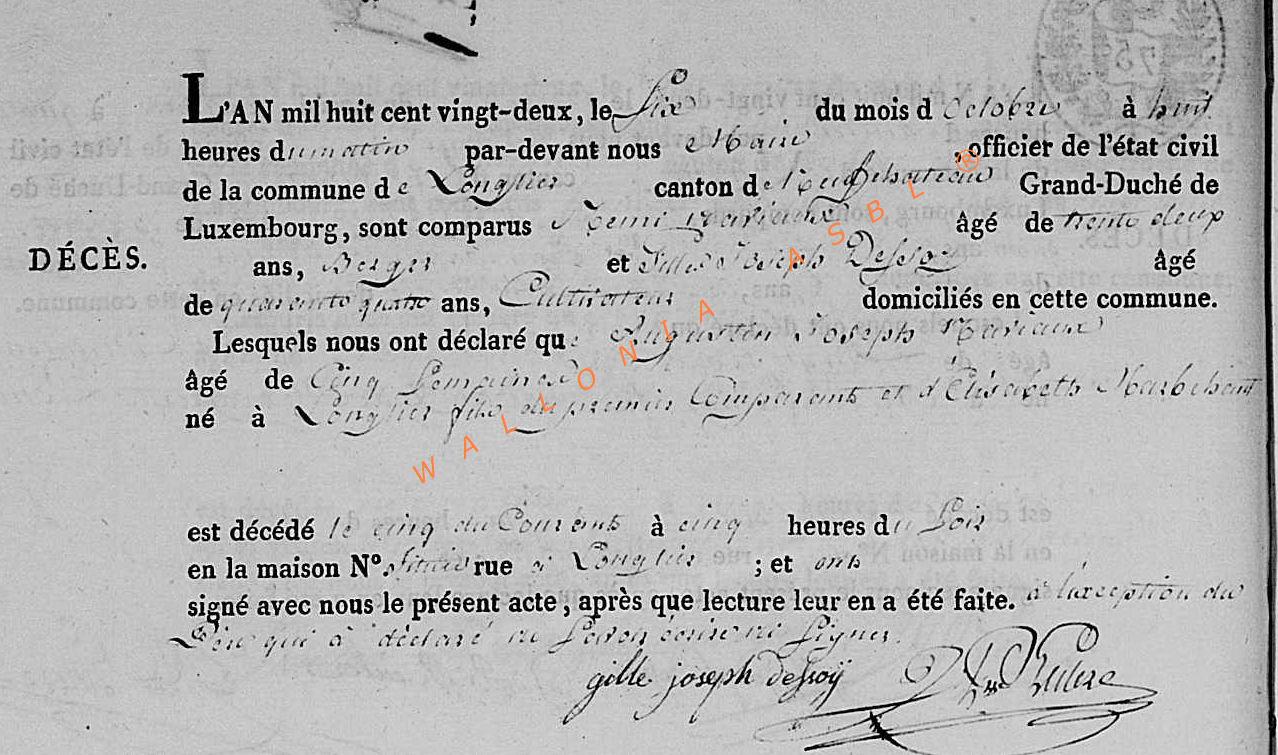 L'AN mil huit cent vingt-deux, le Six du mois d'Octobre à huit
heures du matin par-devant nous Maire, officier de l'état civil
de la commune de Longlier canton de Neufchateau Grand-Duché de
Luxembourg, sont comparus Remi Mariaux âgé de trente deux
DÉCÈS.
ans, Berger et Gilles Joseph Dessoy âgé
de quarante quatre ans, Cultivateur domiciliés en cette commune.
Lesquels nous ont déclaré que Augustin Joseph Mariaux
âgé de Cinq Semaines
né à Longlier fils du premier Comparant et d'Elisabeth Marbehant
est décédé le cinq du Courant à cinq heures du Soir
en la maison N°. située rue à Longlier ; et ont
signé avec nous le présent acte, après que lecture leur en a été faite. à l'exception du
Père qui a déclaré ne Savoir écrire ni Signer.
gille joseph dessoÿ
WALLONIA ASBL ®